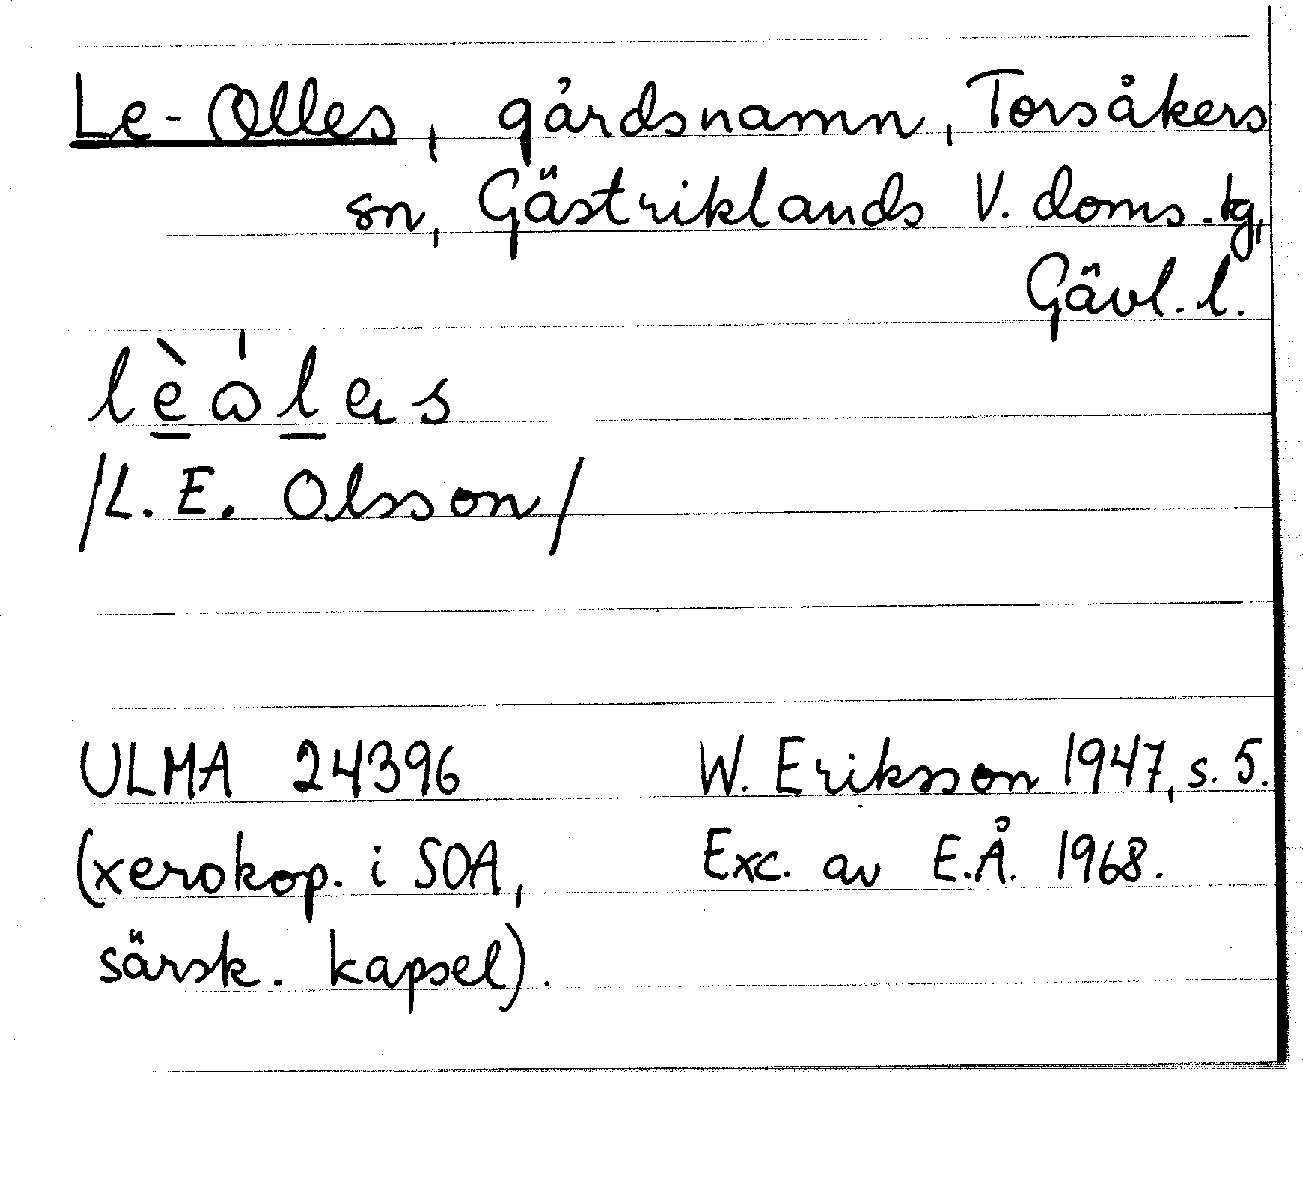 Le-Olles, gårdsnamn, Torsåkers
sn, Gästriklands V. doms.tg,
Gävl. l.
/L. E. Olsson/
ULMA 24396 W. Eriksson 1947, s. 5.
(xerokop. i SOA, Exc. av E.Å. 1968.
särsk. kapsel).